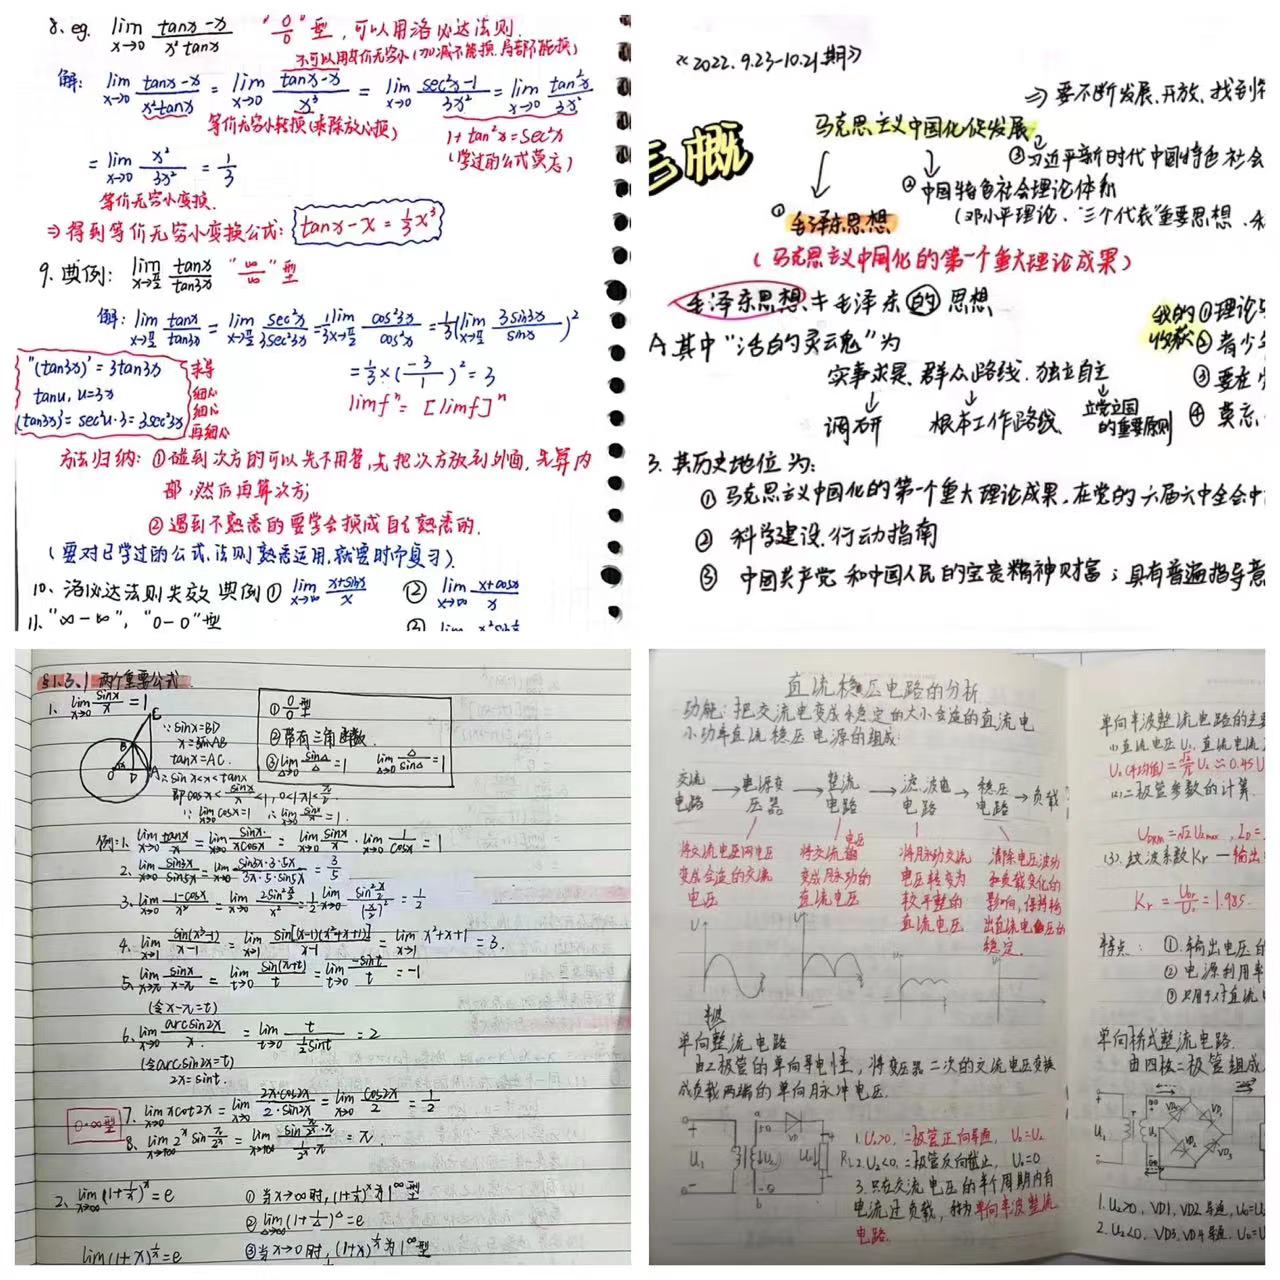 8. eg. lim x→0 (tanx-x)/(x²tanx) "0/0"型,可以用洛必达法则.
不可以用等价无穷小(加减不能换.局部不能换)
解: lim x→0 (tanx-x)/(x²tanx) = lim x→0 (tanx-x)/x³ = lim x→0 (sec²x-1)/3x² = lim x→0 tan²x/3x²
等价无穷小替换(乘除放心换)
1+tan²x=sec²x
(学过的公式莫忘)
= lim x→0 x²/3x² = 1/3
等价无穷小变换.
⇒得到等价无穷小变换公式: tanx-x=1/3x³
9. 典例: lim x→π/2 tanx/tan3x "∞/∞"型
解: lim x→π/2 tanx/tan3x = lim x→π/2 sec²x/3sec²3x = 1/3 lim x→π/2 cos²3x/cos²x = 1/3(lim x→π/2 3sin3x/sinx)²
"(tan3x)'=3tan3x
tanu, u=3x
(tan3x)'=sec²u·3=3sec²3x
求导
细心
细心
再细心
=1/3×(-3/1)²=3
limfⁿ=[limf]ⁿ
方法归纳: ①碰到次方的可以先不用管,先把次方放到外面,先算内
部,然后再算次方;
②遇到不熟悉的要学会换成自己熟悉的.
(要对已学过的公式,法则熟悉运用,就要时常复习).
10、洛必达法则失效典例① lim x→∞ (x+sinx)/x ② lim x→∞ (x+cosx)/x
11. "∞-∞", "0-0"型
《2022.9.23-10.21期》
⇒要不断发展、开放、找到
三概
马克思主义中国化促发展
③习近平新时代中国特色社会
②中国特色社会理论体系
(邓小平理论、"三个代表"重要思想、
①毛泽东思想
(马克思主义中国化的第一个重大理论成果)
毛泽东思想≠毛泽东的思想
我的收获
①理论
②青少
③要在
④莫忘
A.其中"活的灵魂"为
实事求是、群众路线、独立自主
调研 根本工作路线 立党立国的重要原则
3. 其历史地位为:
①马克思主义中国化的第一个重大理论成果,在党的六届六中全会
②科学建设、行动指南
③中国共产党和中国人民的宝贵精神财富;具有普遍指导意
§1.3.1 两个重要公式
1. lim x→0 sinx/x=1
∵sinx=BD
x=弧AB
tanx=AC.
∴sinx<x<tanx
即cosx<sinx/x<1, 0<|x|<π/2.
∵lim x→0 cosx=1 ∴lim x→0 sinx/x=1.
①0/0型
②带有三角函数.
③lim △→0 sin△/△=1 lim △→0 △/sin△=1
例:1. lim x→0 tanx/x = lim x→0 sinx/xcosx = lim x→0 sinx/x · lim x→0 1/cosx = 1
2. lim x→0 sin3x/sin5x = lim x→0 sin3x·3·5x/3x·5·sin5x = 3/5
3. lim x→0 (1-cosx)/x² = lim x→0 2sin²x/2/x² = 1/2 lim x→0 sin²x/2/(x/2)² = 1/2
4. lim x→1 sin(x³-1)/(x-1) = lim x→1 sin[(x-1)(x²+x+1)]/(x-1) = lim x→1 x²+x+1=3.
5. lim x→π sinx/(x-π) = lim t→0 sin(π+t)/t = lim t→0 -sint/t = -1
(令x-π=t)
6. lim x→0 arcsin2x/x = lim t→0 t/(1/2sint) = 2
(令arcsin2x=t)
2x=sint.
0·∞型
7. lim x→0 xcot2x = lim x→0 2x·cos2x/2·sin2x = lim x→0 cos2x/2 = 1/2
8. lim x→+∞ 2ˣsinπ/2ˣ = π.
2. lim x→∞ (1+1/x)ˣ=e
①当x→∞时,(1+1/x)ˣ为1^∞型
②lim △→∞ (1+1/△)^△=e
lim(1+x)^(1/x)=e
③当x→0时,(1+x)^(1/x)为1^∞型
直流稳压电路的分析
功能:把交流电变成稳定的大小合适的直流电
小功率直流稳压电源的组成:
交流电路→电源变压器→整流电路→滤波电路→稳压电路→负载
将交流电压网电压变成合适的交流电压
将交流电压变成脉动的直流电压
将脉动交流电压转变为较平整的直流电压
清除电压波动和负载变化的影响,保持输出直流电压的稳定.
单向整流电路
由二极管的单向导电性,将变压器二次的交流电压变换
成负载两端的单向脉冲电压.
1.U₂>0,二极管正向导通,U₀=U₂
2.U₂<0,二极管反向截止,U₀=0
3.只在交流电压的半个周期内有
电流过负载,称为单向半波整流
电路.
单向半波整流电路的主要
(1)直流电压U₀、直流电流
U₀(平均值)=√2/π U₂≈0.45U
(2)二极管参数的计算.
UDRM=√2U₂max, ID=
(3).纹波系数Kr—输出
Kr=U₀r/U₀=1.985.
特点:①.输出电压的
②电源利用率
③只用于对直流
单向桥式整流电路.
由四枚二极管组成
1.U₂>0, VD1,VD2导通,U₀=U
2.U₂<0, VD3,VD4导通.U₀=U